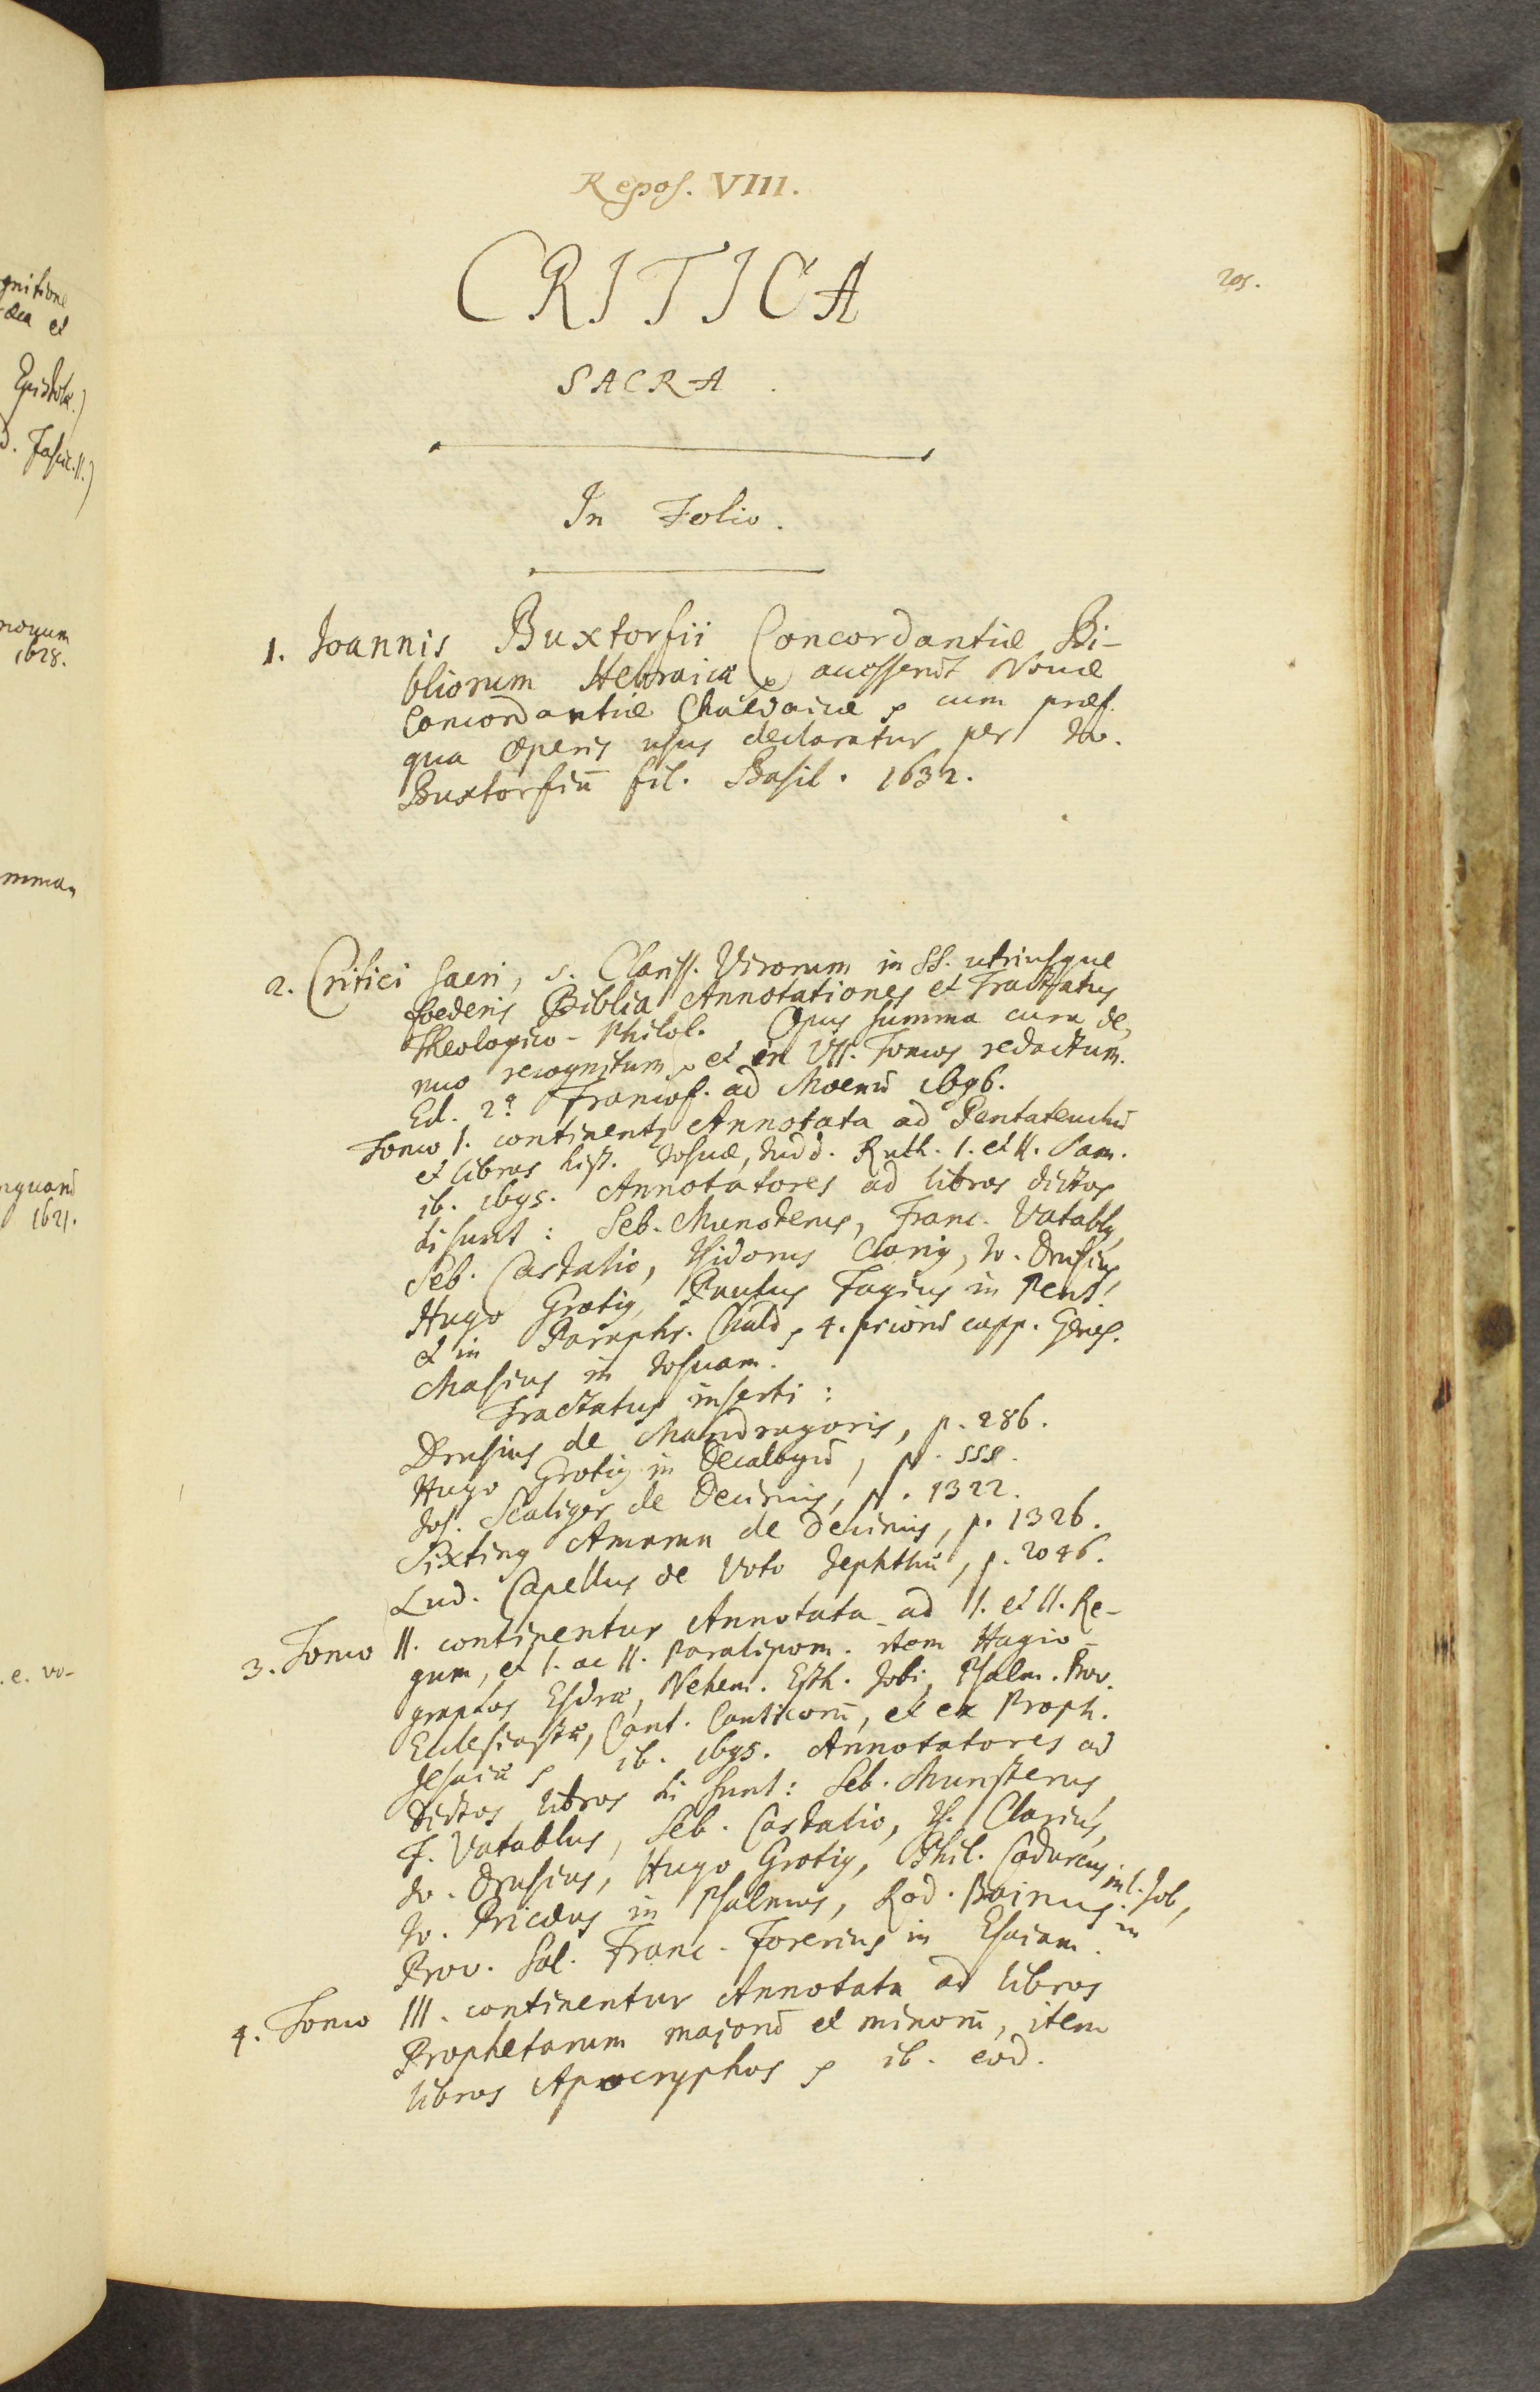 Repos. VIII.
CRITICA
205.
SACRA.
In Folio.
1. Joannis Buxtorfii Concordantiæ Bi-
bliorum Hebraicæ accesserūt Novæ
Concordantiæ Chaldaicæ cum præf.
qua operis usus declaratur per Jo.
Buxtorfiū fil. Basil. 1632.
2. Critici sacri, s. Clariss. Virorum in SS. utriusque
foederis Biblia Annotationes et Tractatus
Theologico-Philol. Opus summa cura de,
nuo recognitum et in VII. Tomos redactum.
Ed. 2ª Francof. ad Moenū 1696.
Tomo I. continent Annotata ad Pentateuchū
et libros hist. Josuæ, Judd. Ruth. I. et II. Sam.
ib. 1695. Annotatores ad libros dictos
hi sunt: Seb. Munsterus, Franc. Vatablus,
Seb. Castalio, Isidorus Clarius, Jo. Drusius,
Hugo Grotius, Paulus Fagius in Pent.
et in Paraphr. Chald. 4. priorū capp. Genes.
Masius in Josuam.
Tractatus inserti:
Drusius de Mandragoris, p. 286.
Hugo Grotius in Decalogū, p.
Jos. Scaliger de Decimis, p. 1322.
Sixtinus Amama de Decimis, p. 1326.
Lud. Capellus de Voto Jephthæ, p. 2046.
3. Tomo II. continentur Annotata ad I. et II. Re-
gum, et I. ac II. Paralipom. item Hagio-
graphos Esdræ, Nehem. Esth. Jobi, Psalm. Prov.
Ecclesiastæ, Cant. Canticorū, et ex Proph.
Jesaiæ ib. 1695. Annotatores ad
dictos libros hi sunt: Seb. Munsterus,
F. Vatablus, Seb. Castalio, Is. Clarius,
Jo. Drusius, Hugo Grotius, Phil. Codurcus in l. Job,
Jo. Pricæus in Psalmos, Rod. Bainus in
Prov. Sal. Franc. Forerius in Esaiam.
4. Tomo III. continentur Annotata ad libros
Prophetarum majorū et minorū, item
libros Apocryphos ib. eod.
gnitione
et
Epistolæ.)
Fascic. II.)
1628.
1621.
.e. vo-